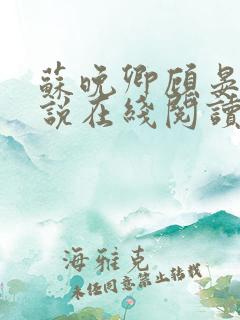 蘇晚卿顾晏
說在綫閱讀
海雅克
未经同意禁止转载